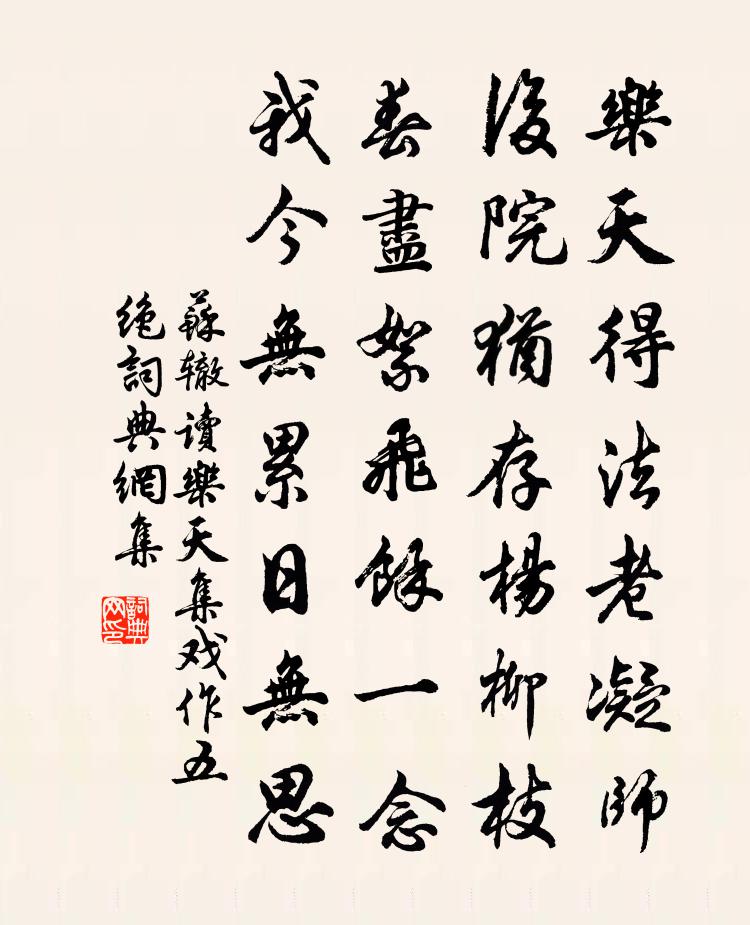 樂天得法老凝師
後院猶存楊柳枝
春盡絮飛餘一念
我今無累日無思
蘇辙讀樂天集戏作五
絶詞典網集
詞典网印